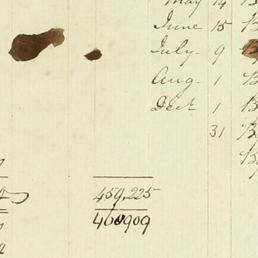 May 14 B
June 15 B
July 9 B
Aug. 1 B
Dect 1 B
31 B
459,225
460909